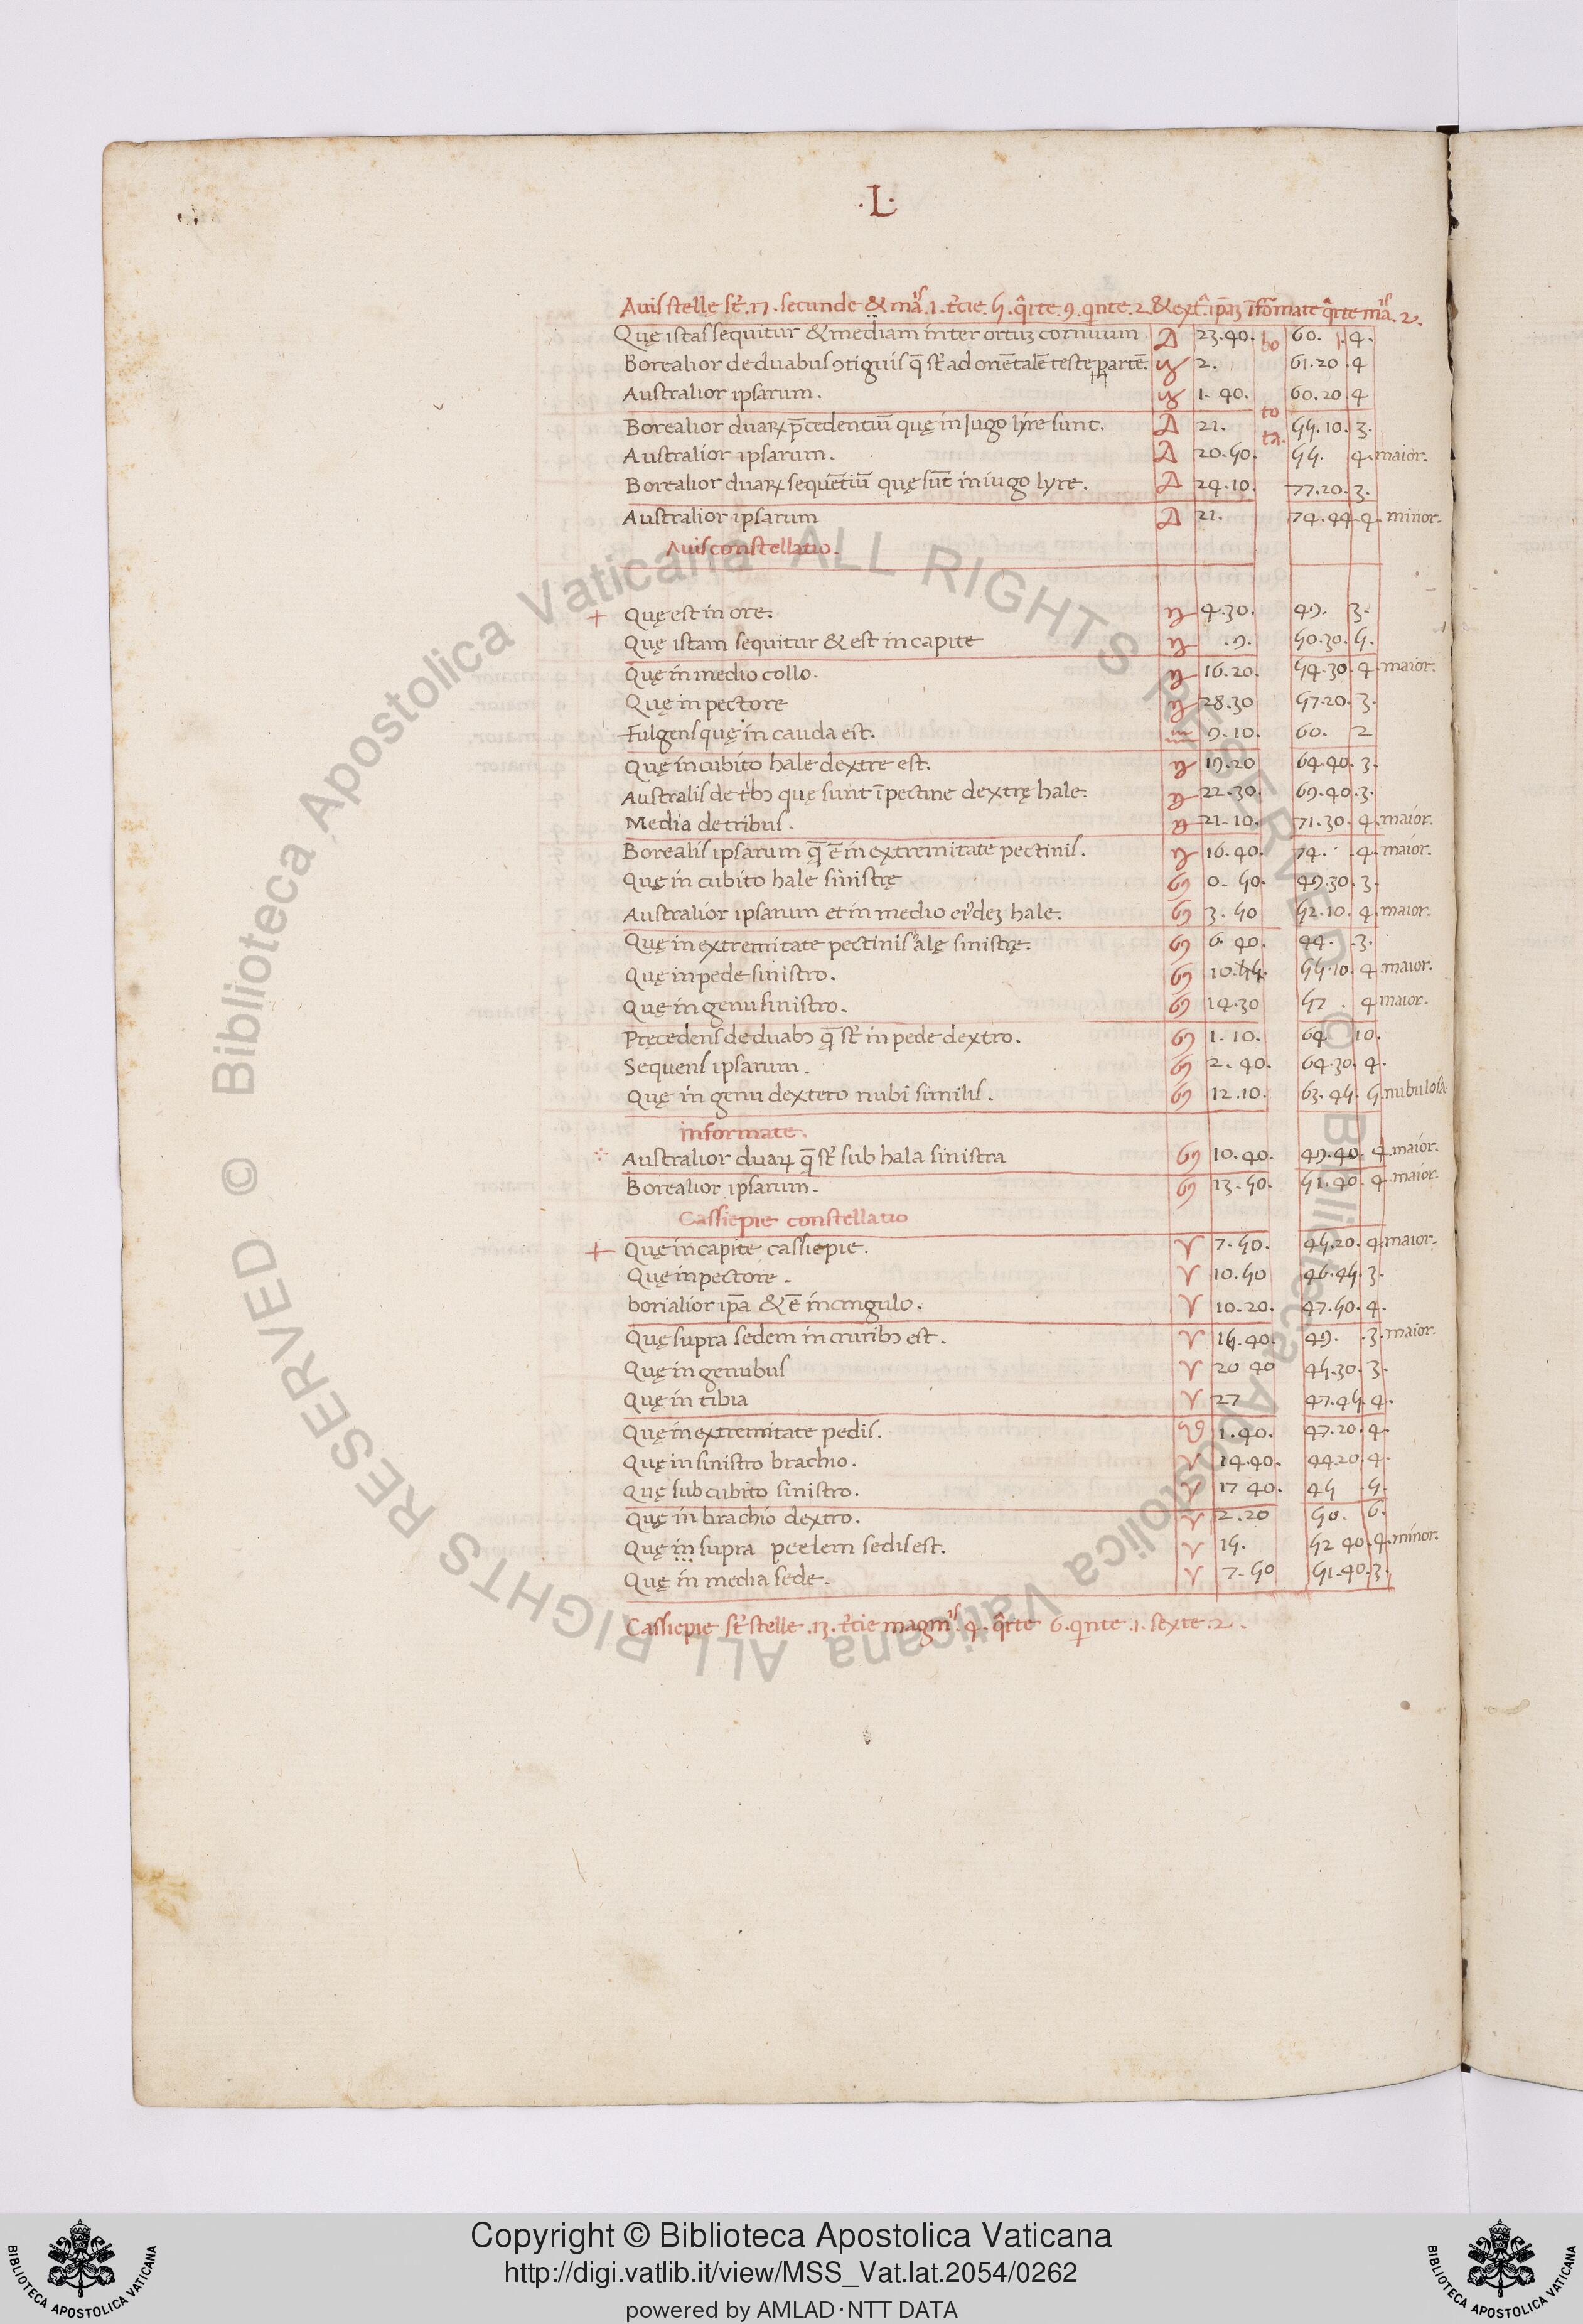 ·L·
Auis stellę st̄. 17. secunde & ma^is. 1. t̄cie. 5. qr̄te. 9. qnte. 2 & ext^a. ip̄aꝝ īfōrmate qr̄te ma^is. 2.
Quę istas sequitur & mediam inter ortuꝫ cornuum 23.40. bo 60. 1. 4.
Borealior de duabus ↄtiguis q̄ st̄ ad oriētalē teste partē. 2. 61.20. 4
Australior ipsarum. 1. 40. 60.20. 4
Borealior duaꝝ p̄cedentiū quę in Jugo lyre sunt. 21. to 55.10. 3.
Australior ipsarum. 20.50. ta. 55. 4. maior.
Borealior duaꝝ sequētiū quę sūt in iugo lyre. 24.10. 77.20. 3.
Australior ipsarum 21. 74.44. 4. minor.
Auis constellatio.
+ Quę est in ore. 4.30. 49. 3.
Quę istam sequitur & est in capite .9. 50.30. 5.
Quę in medio collo. 16.20. 54.30. 4. maior.
Quę in pectore 28.30 57.20. 3.
Fulgens quę in cauda est. 9.10. 60. 2
Quę in cubito hale dextre est. 19.20 64.40. 3.
Australis de t'bꝰ quę sunt ī pectine dextrę hale. 22.30. 69.40. 3.
Media de tribus. 21.10. 71.30. 4. maior.
Borealis ipsarum q̄ ē in extremitate pectinis. 16.40. 74. 4. maior.
Quę in cubito hale sinistrę 0. 50. 49.30. 3.
Australior ipsarum et in medio ei'deꝫ hale. 3. 50 52.10. 4. maior.
Quę in extremitate pectinis alę sinistrę. 6. 40. 44. 3.
Quę in pede sinistro. 10.55. 55.10. 4 maior.
Quę in genu sinistro. 14.30 57. 4 maior.
Pręcedens de duabꝰ q̄ st̄ in pede dextro. 1. 10. 64 10.
Sequens ipsarum. 2. 40. 64.30. 4.
Quę in genu dextero nubi similis. 12.10. 63.45. 5. nubulosa
informate.
Australior duaꝝ q̄ st̄ sub hala sinistra 10.40. 49.40. 4. maior.
Borealior ipsarum. 13.50. 51.40. 4. maior.
Cassiepie constellatio
+ Quę in capite cassiepie. 7.50. 45.20. 4. maior.
Quę in pectore. 10.50 46.45. 3.
borialior ip̄a & ē in cingulo. 10.20. 47.50. 4.
Quę supra sedem in cruribꝰ est. 15.40. 49. 3. maior.
Quę in genubus 20 40 45.30. 3.
Quę in tibia 27 47.45. 4.
Quę in extremitate pedis. 1.40. 47.20. 4.
Quę in sinistro brachio. 14.40. 44.20. 4.
Quę sub cubito sinistro. 17 40. 45 5.
Quę in brachio dextro. 2.20 50. 6.
Quę in supra peelem sedis est. 15. 52 40. 4. minor.
Quę in media sede. 7.50 51.40. 3.
Cassiepie st̄ stelle .13. t̄cie magm^is. 4. qr̄te 6. qnte .1. sexte .2.
© Biblioteca Apostolica Vaticana ALL RIGHTS RESERVED © Biblioteca Apostolica Vaticana ALL RIGHTS RESERVED
BIBLIOTECA APOSTOLICA VATICANA
Copyright © Biblioteca Apostolica Vaticana
http://digi.vatlib.it/view/MSS_Vat.lat.2054/0262
powered by AMLAD·NTT DATA
BIBLIOTECA APOSTOLICA VATICANA